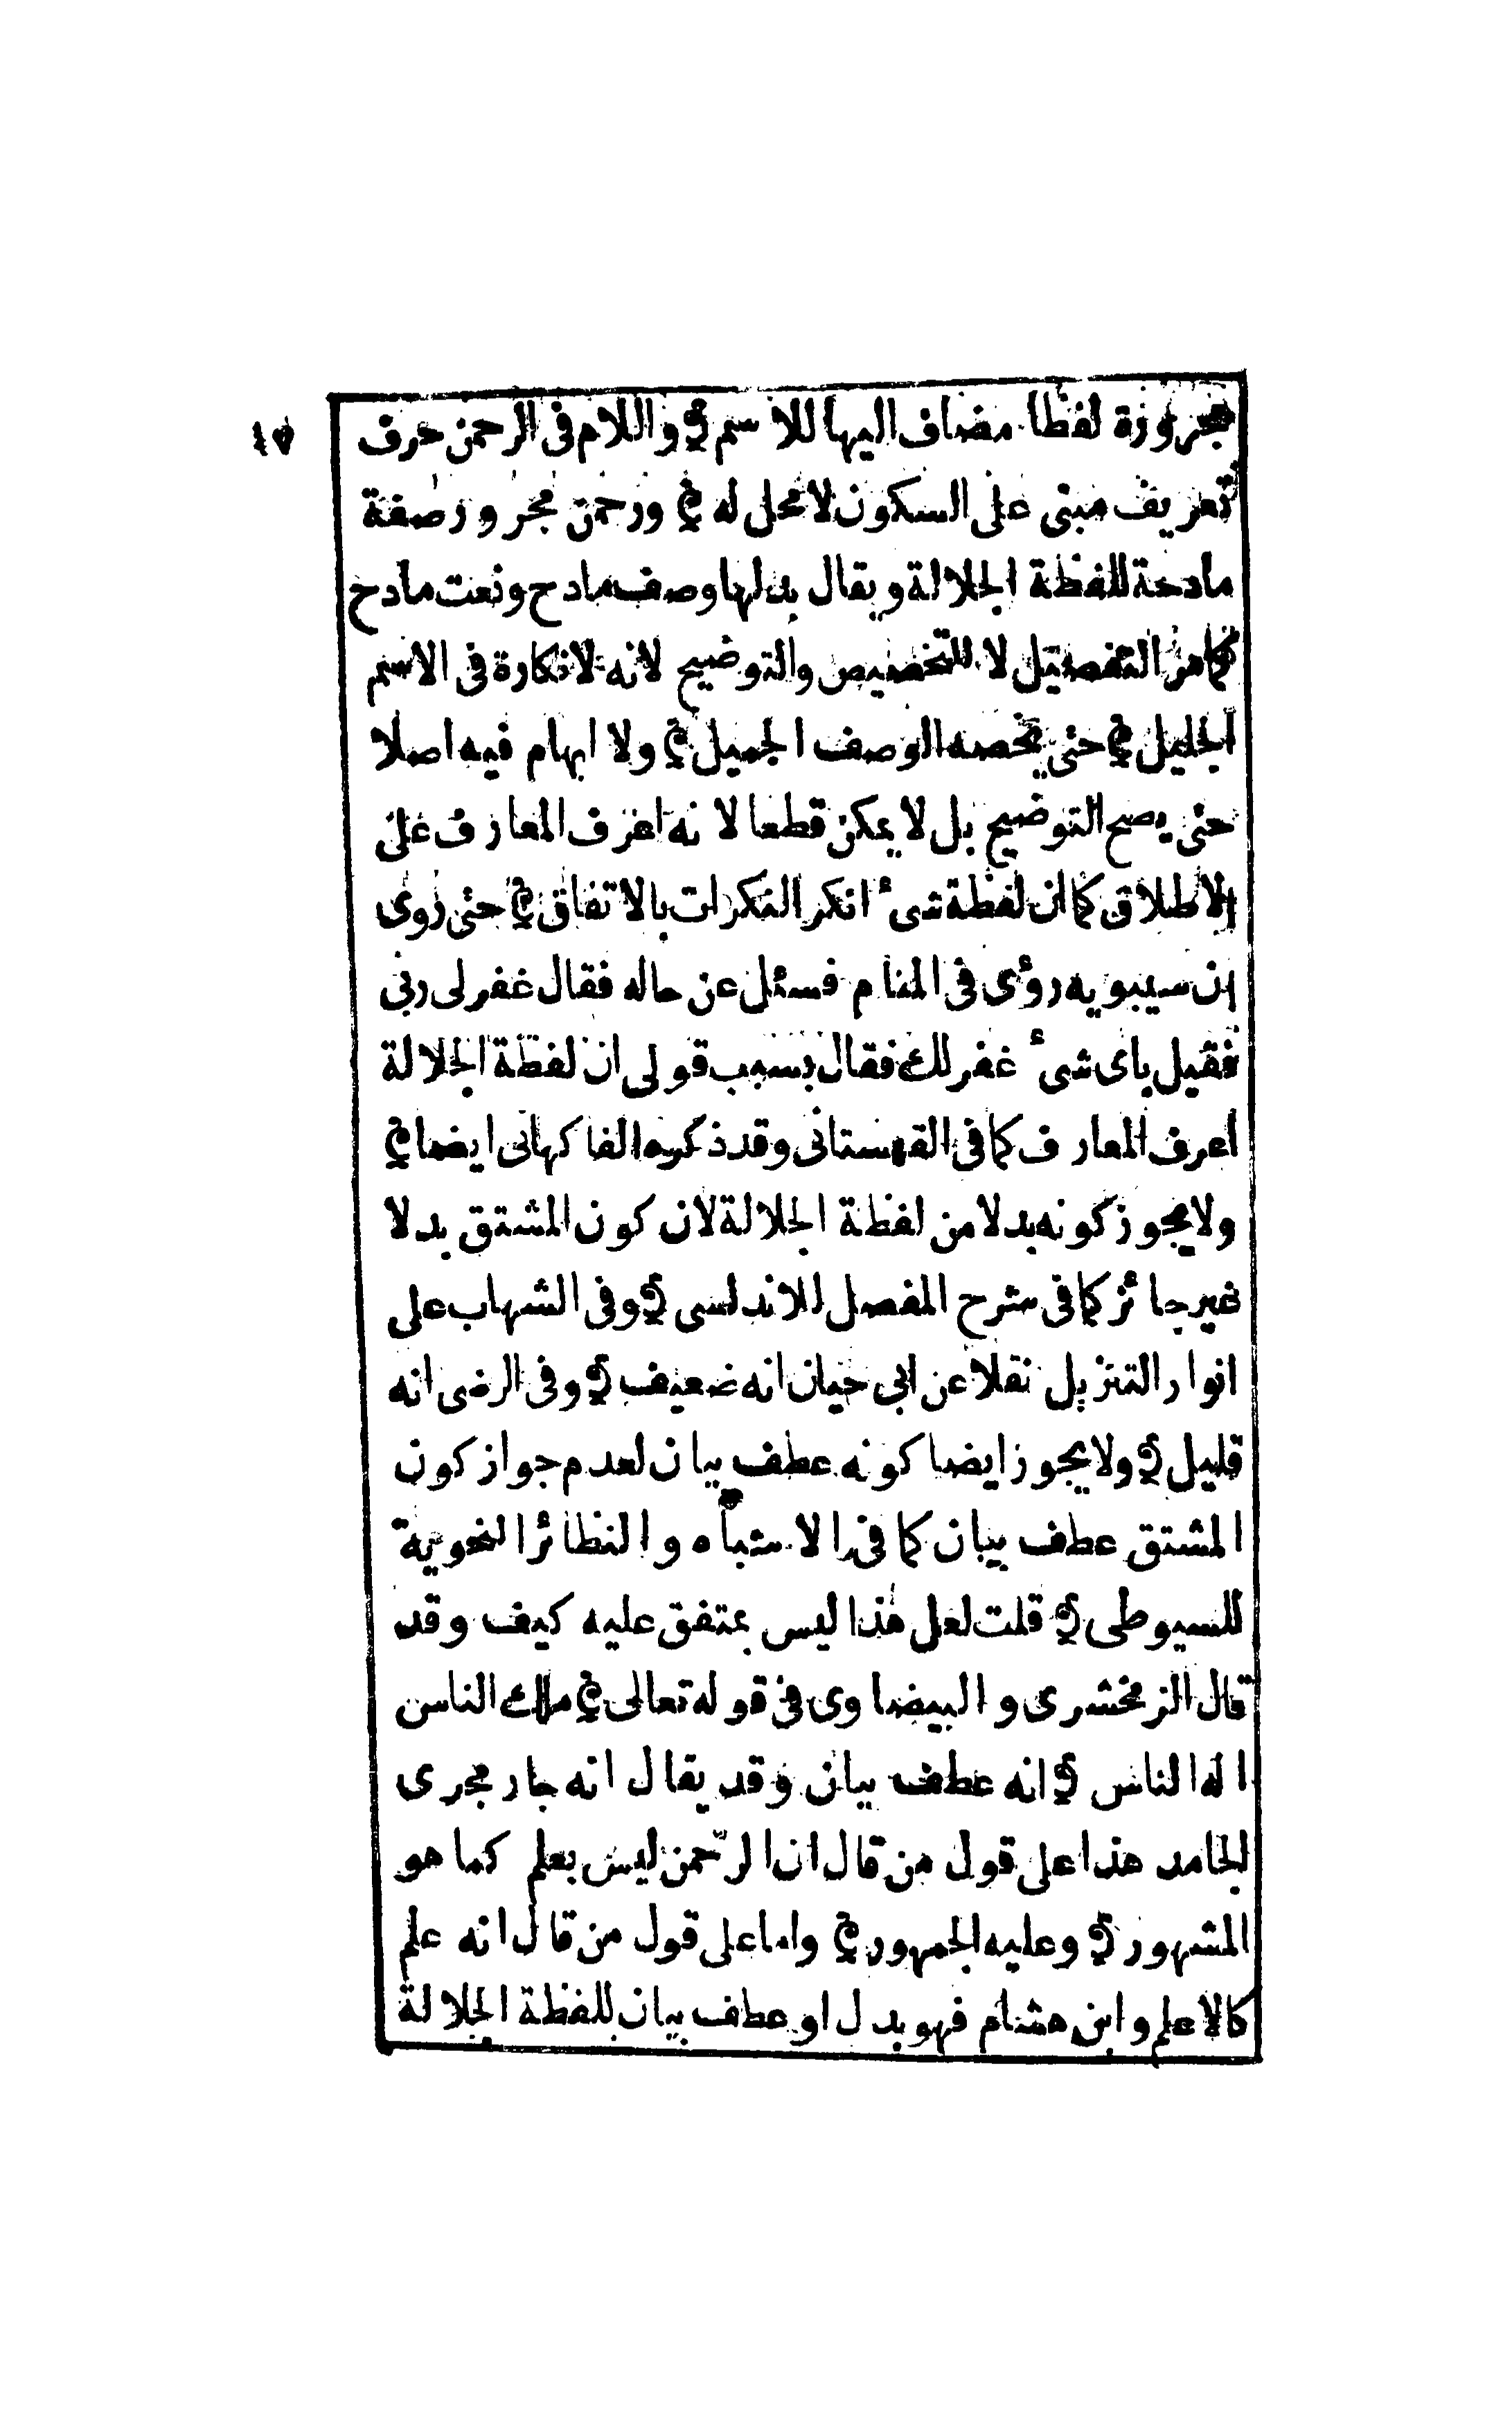 ١٥
مجرورة لفظا مضاف اليها للاسم ﴿ واللام فى الرحمن حرف
تعريف مبنى على السكون لا محل له ﴾ ورحمن مجرور صفة
مادحة للفظة الجلالة ويقال بدلها وصف مادح ونعت مادح
كما مر التفصيل لا للتخصيص والتوضيح لانه لا نكارة فى الاسم
الجليل ﴾ حتى يخصه الوصف الجميل ﴾ ولا ابهام فيه اصلا
حتى يصح التوضيح بل لا يمكن قطعا لانه اعرف المعارف على
الاطلاق كما ان لفظة شئ انكر النكرات بالاتفاق ﴾ حتى روى
ان سيبويه رؤى فى المنام فسئل عن حاله فقال غفر لى ربى
فقيل باى شئ غفر لك فقال بسبب قولى ان لفظة الجلالة
اعرف المعارف كما فى القهستانى وقد ذكره الفاكهانى ايضا ﴾
ولا يجوز كونه بدلا من لفظة الجلالة لان كون المشتق بدلا
غير جائز كما فى شرح المفصل للاندلسى ﴿ وفى الشهاب على
انوار التنزيل نقلا عن ابى حيان انه ضعيف ﴿ وفى الرضى انه
قليل ﴿ ولا يجوز ايضا كونه عطف بيان لعدم جواز كون
المشتق عطف بيان كما فى الاشباه والنظائر النحوية
للسيوطى ﴿ قلت لعل هذا ليس بمتفق عليه كيف وقد
قال الزمخشرى والبيضاوى فى قوله تعالى ﴾ ملك الناس
اله الناس ﴿ انه عطف بيان وقد يقال انه جار مجرى
الجامد هذا على قول من قال ان الرحمن ليس بعلم كما هو
المشهور ﴿ وعليه الجمهور ﴾ واما على قول من قال انه علم
كالاعلم وابن هشام فهو بدل او عطف بيان للفظة الجلالة